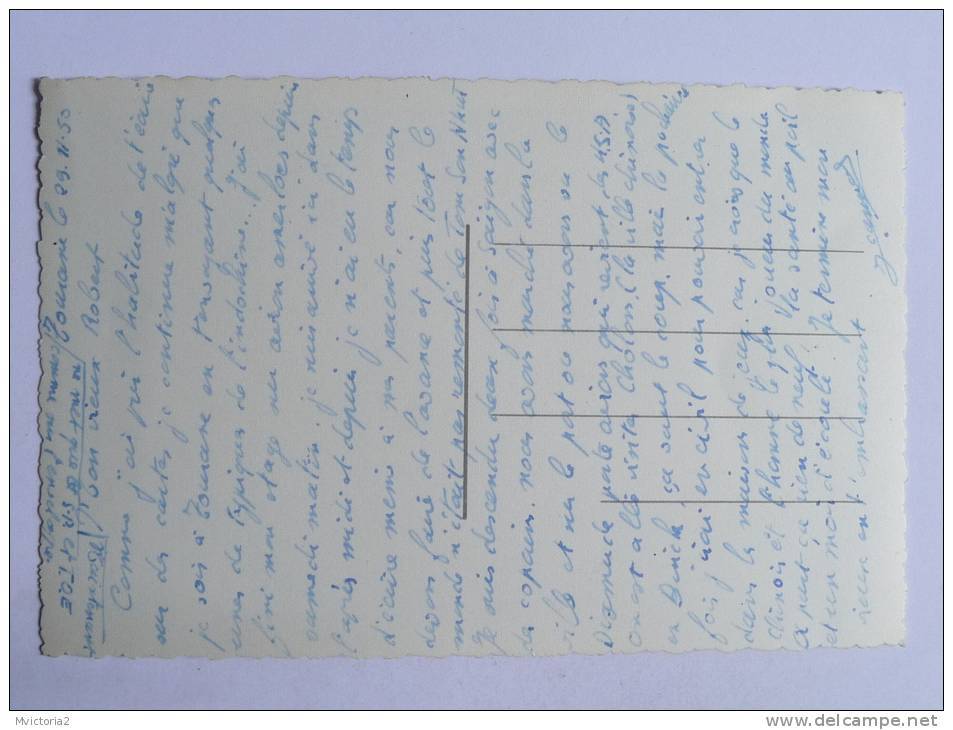 Tourane le 29.11.50
Mon vieux Robert
Comme j'ai pris l'habitude de t'écrire
sur des cartes, je continue malgré que
je sois à Tourane en t'envoyant quelques
unes de typiques de l'indochine. J'ai
fini mon stage sur avion
samedi matin. je suis arrivé ici dans
l'après midi et depuis je n'ai eu le temps
d'écrire même à mes parents, car nous
avons fait de l'avion et puis tout le
monde n'était pas remonté de Tan Son Nhut
Je suis descendu deux fois à Saïgon avec
des copains. nous avons marché dans la
ville et sur le port où nous avons vu le
Dixmude porte avions qui revient des U.S.A
on est allé visiter Cholon (la ville chinoise)
en ça vaut le coup mais la prochaine
fois j'irai en civil pour pouvoir entrer
dans les maisons de jeux, car je crois que le
chinois est l'homme le plus joueur du monde
A part ça rien de neuf. Ma santé au poil
et un mois d'écoulé. Je termine mon
vieux en t'embrassant
Mvictoria2
www.delcampe.net